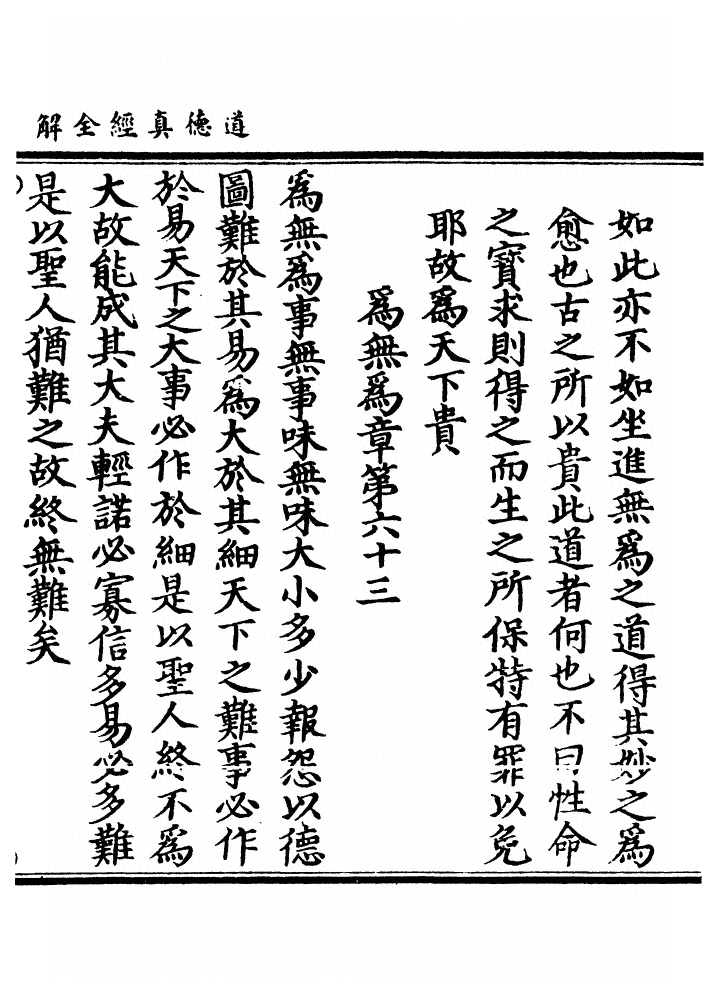 道德真經全解
如此亦不如坐進無爲之道得其妙之爲
愈也古之所以貴此道者何也不曰性命
之寶求則得之而生之所保特有罪以免
耶故爲天下貴
爲無爲章第六十三
爲無爲事無事味無味大小多少報怨以德
圖難於其易爲大於其細天下之難事必作
於易天下之大事必作於細是以聖人終不爲
大故能成其大夫輕諾必寡信多易必多難
是以聖人猶難之故終無難矣